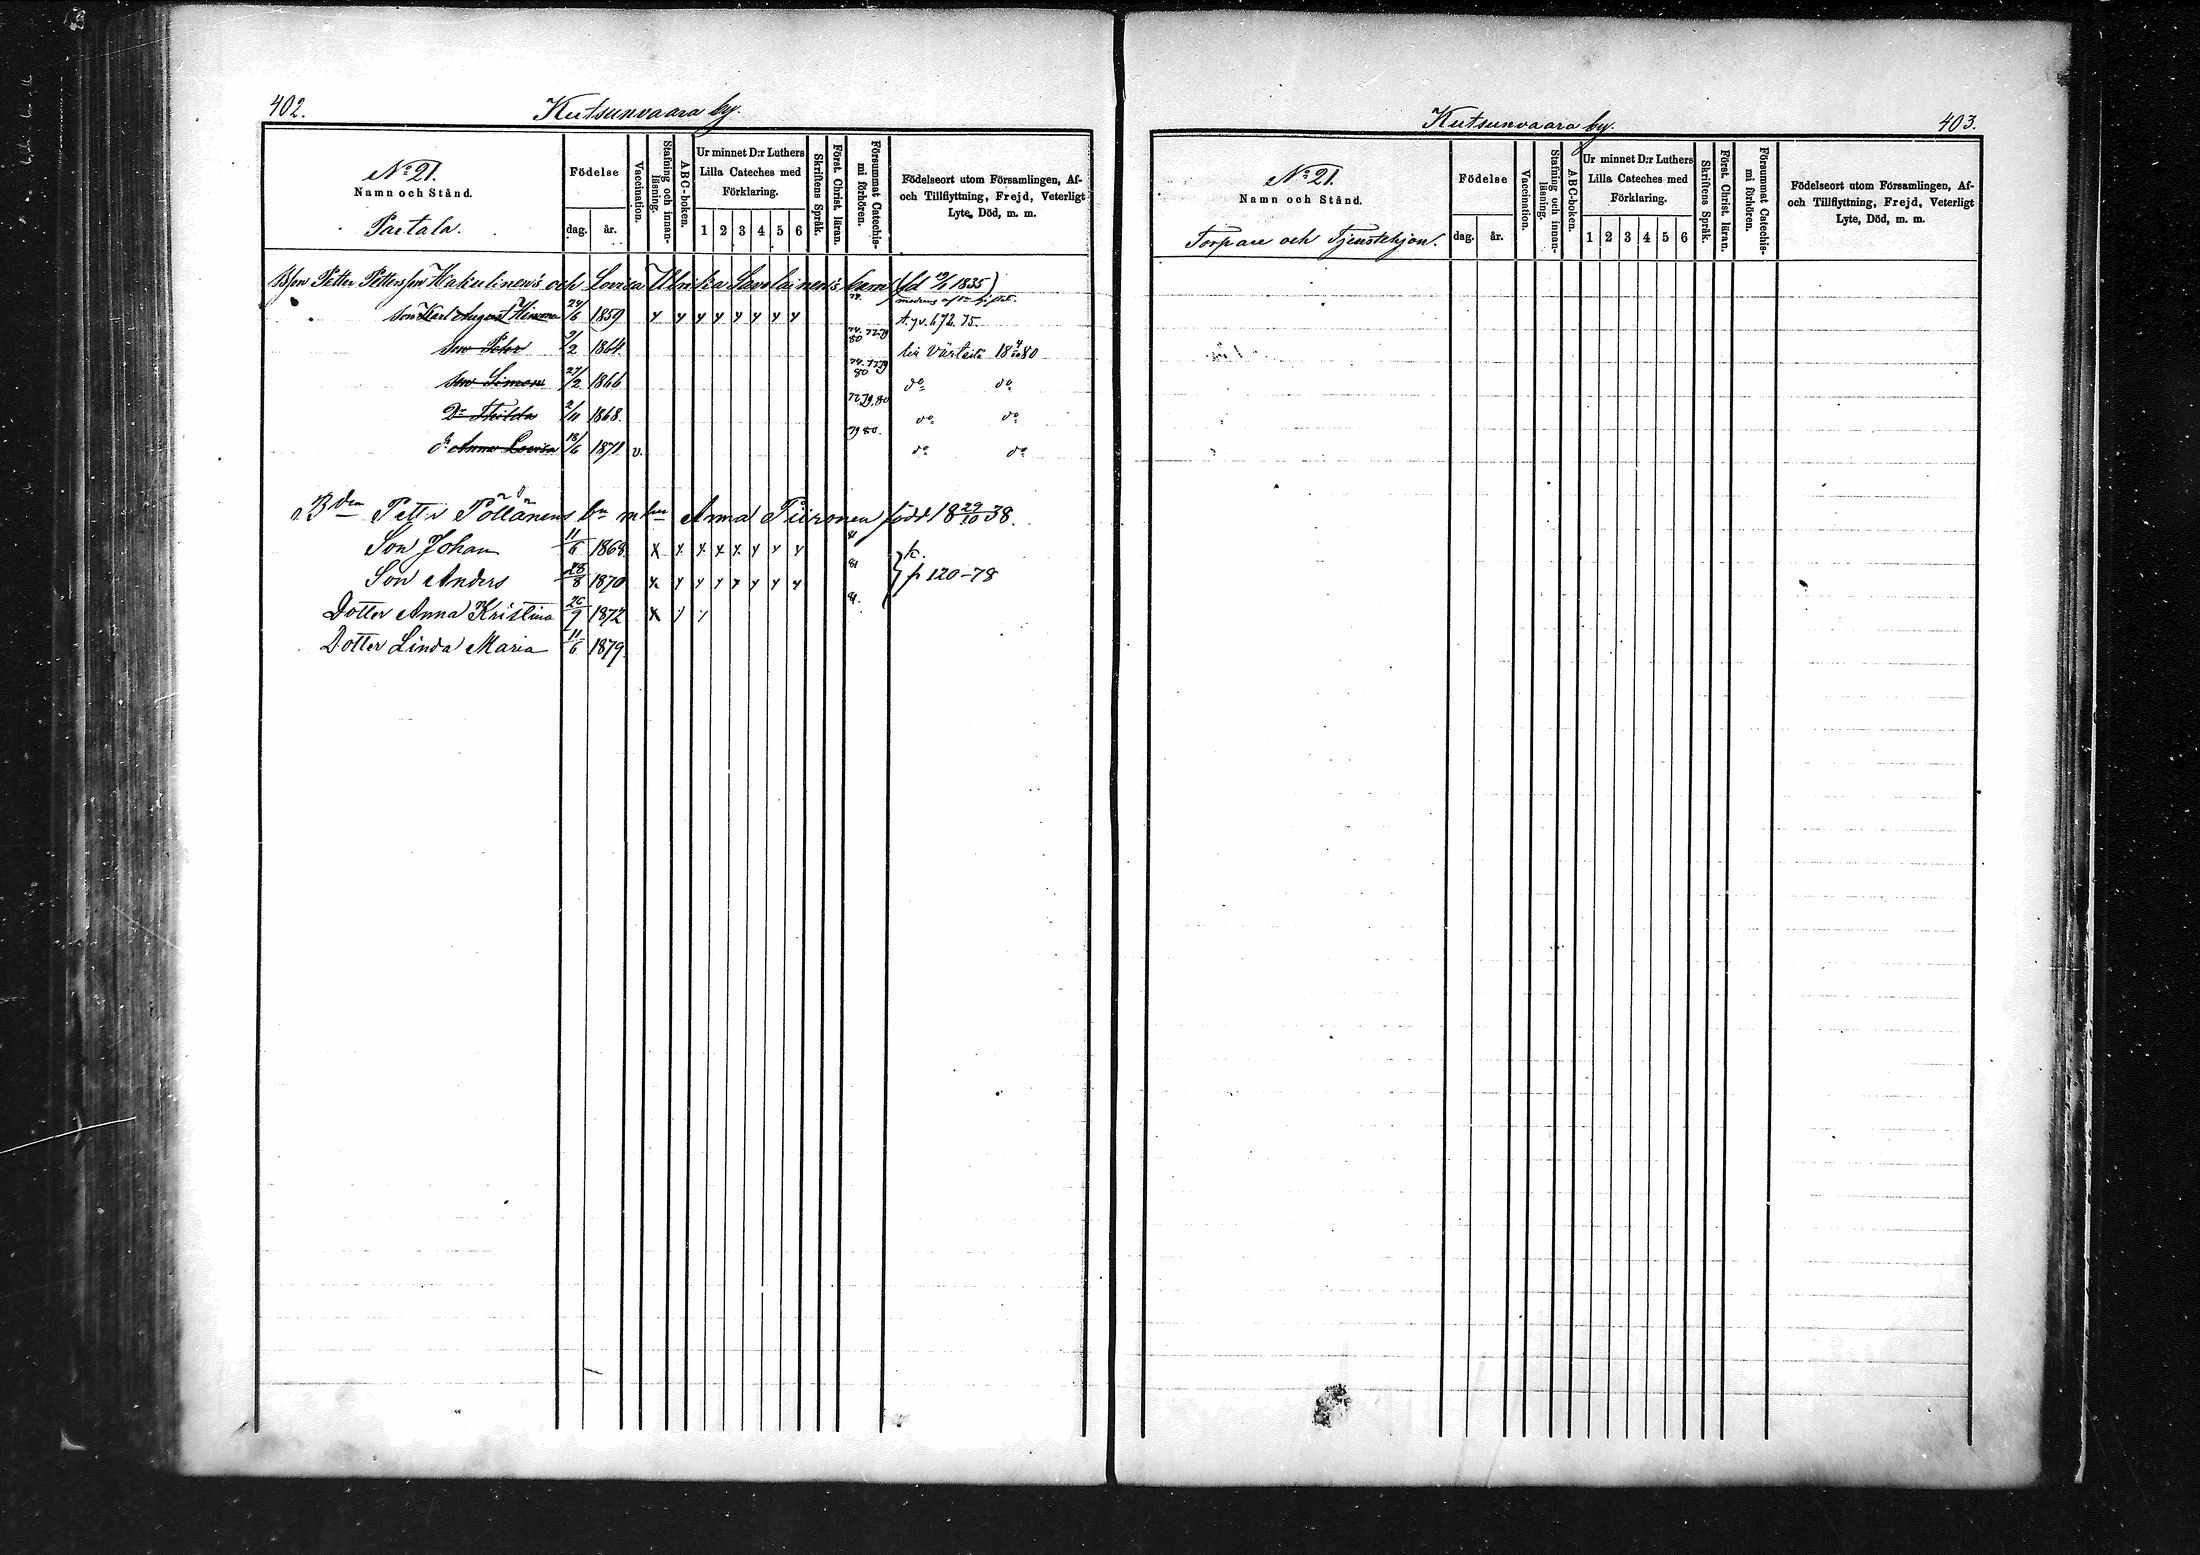 402. Kutsunvaara by.
No 21.
Namn och Stånd.
Födelse
dag. år.
Vaccination.
Stafning och innan-
läsning.
ABC-boken.
Ur minnet D:r Luthers
Lilla Cateches med
Förklaring.
1 2 3 4 5 6
Skriftens Språk.
Först. Christ. läran.
Försummat Catechis-
mi förhören.
Födelseort utom Församlingen, Af-
och Tillflyttning, Frejd, Veterligt
Lyte, Död, m. m.
Petter Hakulinen's och Lovisa Ulrika Savolainen's barn (fd 1835)
Son Karl August 24/6 1859 672. 75.
Son Pehr 2/2 1864. Värtsilä 18 80
Son Simon 27/2 1866 do do
Do Thilda 2/11 1868. do do
do Anna Lovisa 18/6 1871 v. do do
Petter Pöllänens Anna Piironen född 18 29/10 38.
Son Johan 11/6 1868 x
Son Anders 28/8 1870 x 120-78
Dotter Anna Kristina 26/9 1872 x
Dotter Linda Maria 11/6 1879
Kutsunvaara by. 403.
No 21.
Namn och Stånd.
Torpare och Tjenstehjon.
Födelse
dag. år.
Vaccination.
Stafning och innan-
läsning.
ABC-boken.
Ur minnet D:r Luthers
Lilla Cateches med
Förklaring.
1 2 3 4 5 6
Skriftens Språk.
Först. Christ. läran.
Försummat Catechis-
mi förhören.
Födelseort utom Församlingen, Af-
och Tillflyttning, Frejd, Veterligt
Lyte, Död, m. m.